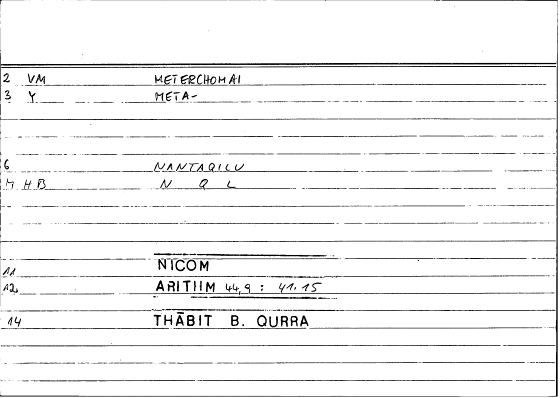 2 VM METERCHOMAI
3 Y META-
6 NANTAQILU
HB N Q L
11 NICOM
12 ARITHM 44,9 : 41.15
14 THĀBIT B. QURRA